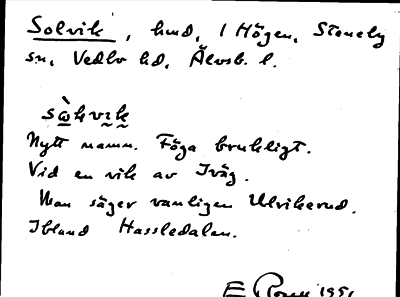 Solvik, hmd, i Högen, Steneby
sn, Vedbo hd, Älvsb. l.
sòlvik
Nytt namn. Föga brukligt.
Vid en vik av Iväg.
Man säger vanligen Ulrikerud.
Ibland Hassledalen.
E 1951